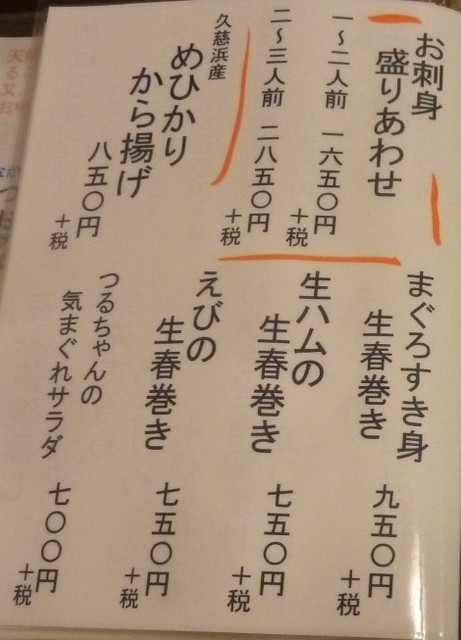 お刺身
盛りあわせ
一〜二人前 一六五〇円
＋税
二〜三人前 二八五〇円
＋税
久慈浜産
めひかり
から揚げ
八五〇円
＋税
まぐろすき身
生春巻き
九五〇円
＋税
生ハムの
生春巻き
七五〇円
＋税
えびの
生春巻き
七五〇円
＋税
つるちゃんの
気まぐれサラダ
七〇〇円
＋税